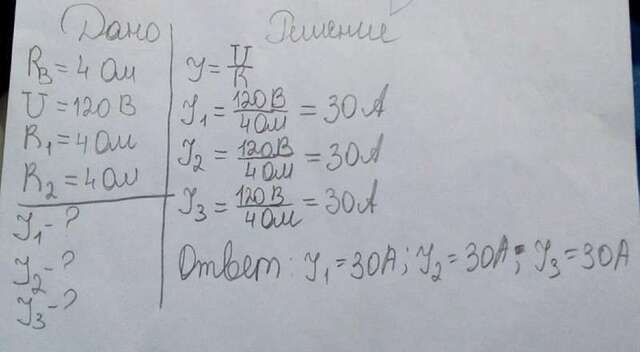 Дано
Rв = 4 Ом
U = 120 В
R₁ = 4 Ом
R₂ = 4 Ом
У₁ - ?
У₂ - ?
У₃ - ?
Решение
У = U/R
У₁ = 120В/4 Ом = 30 А
У₂ = 120В/4 Ом = 30 А
У₃ = 120В/4 Ом = 30 А
Ответ: У₁ = 30А; У₂ = 30А; У₃ = 30А